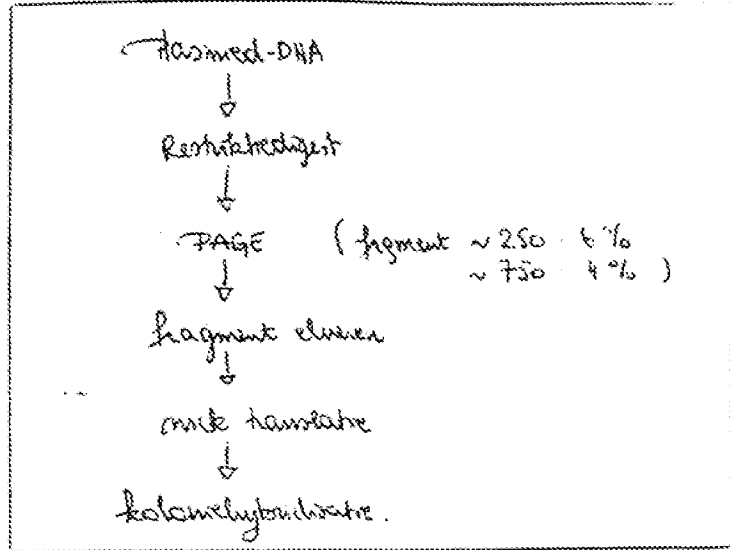 Plasmied-DNA
Restriktiedigest
PAGE ( fragment ~ 250 6 %
~ 750 4 % )
fragment elueren
nick translatie
koloniehybridisatie.